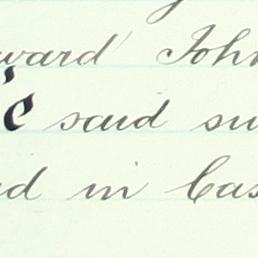 ward Joh
c said su
d in Cas